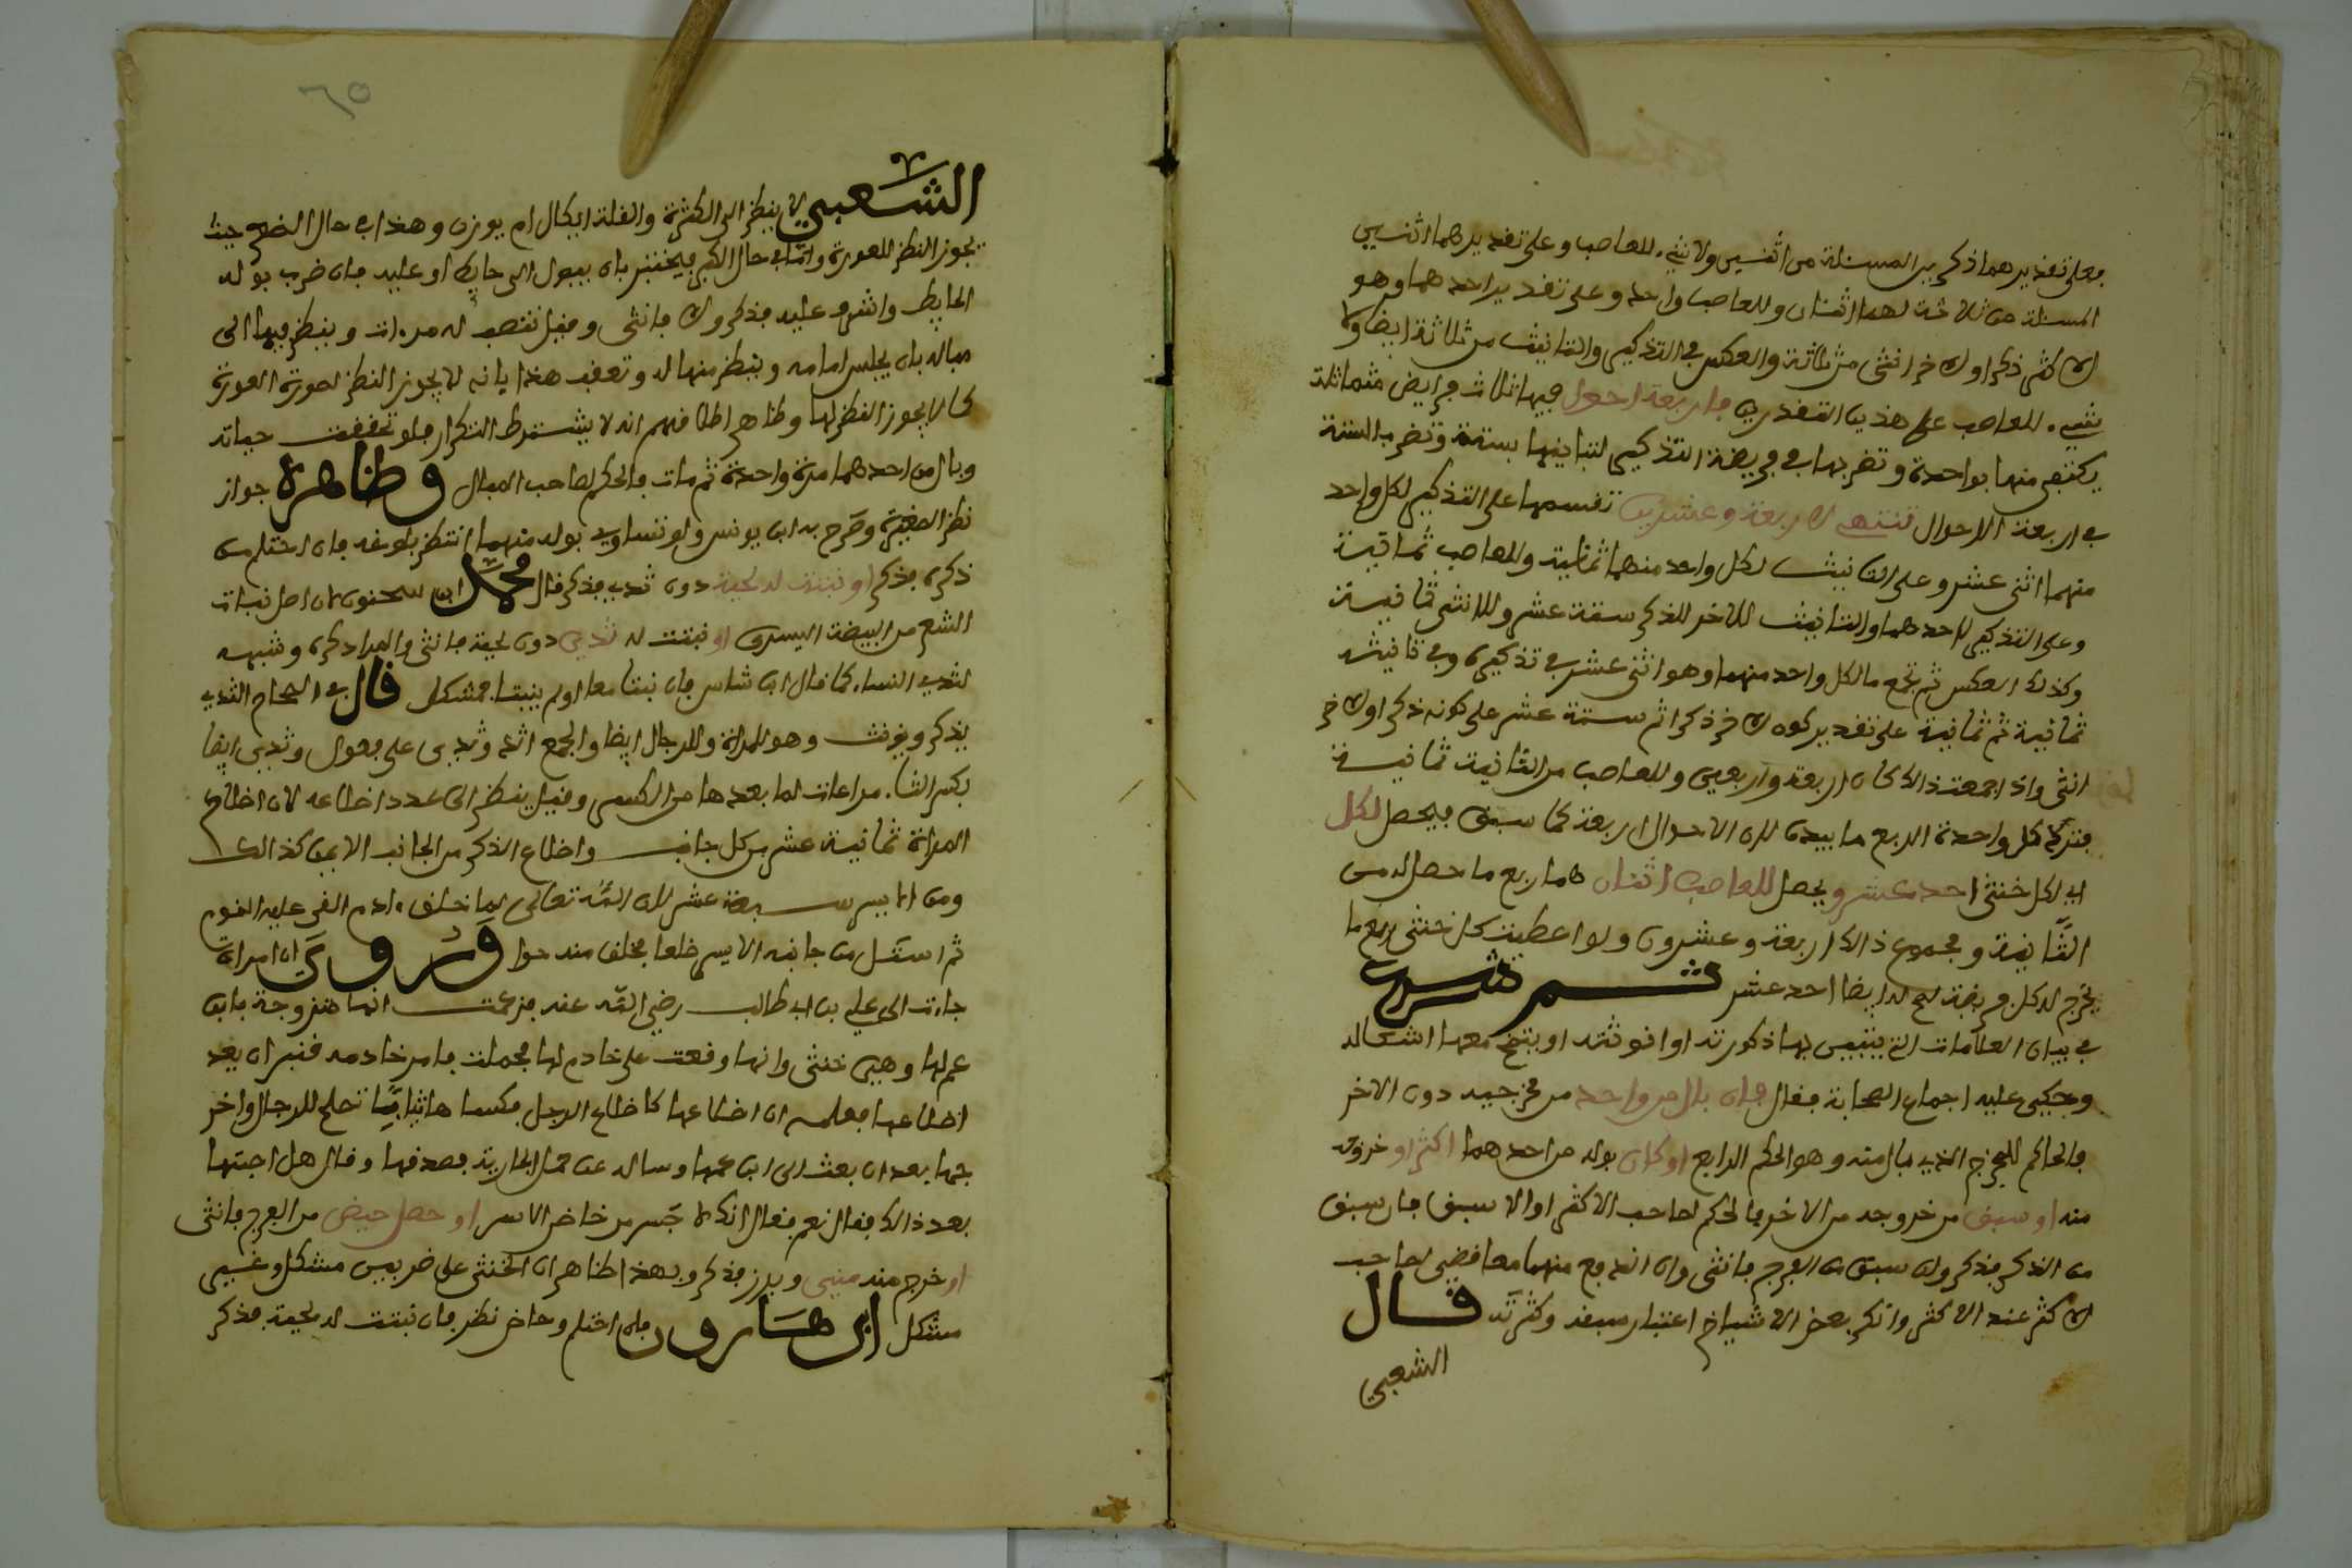 فعلى تقديرهما ذكرين المسئلة من اثنين ولا شيء للعاصب وعلى تقديرهما انثيين
المسئلة من ثلاثة لهما اثنان وللعاصب واحد وعلى تقدير احدهما وهو
الاكثر ذكرا والاخر انثى من ثلاثة والعكس في التذكير والتانيث من ثلاثة ايضا ولا
شيء للعاصب على هذين التقديرين فاربعة احوال فيها ثلاث فرايض متماثلة
يكتفى منها بواحدة وتضربها في فريضة التذكير لتباينها بستة وتضرب الستة
في اربعة الاحوال تنتهي لاربعة وعشرين تقسمها على التذكير لكل واحد
منهما اثنى عشر وعلى التانيث لكل واحد منهما ثمانية وللعاصب ثمانية
وعلى التذكير لاحدهما والتانيث للاخر للذكر ستة عشر وللانثى ثمانية
وكذلك العكس ثم تجمع ما لكل واحد منهما وهو اثنى عشر في تذكيره وفي تانيثه
ثمانية ثم ثمانية على تقدير كون الاخر ذكرا ثم ستة عشر على كونه ذكرا والاخر
انثى واذا جمعت ذالك كان اربعة واربعين وللعاصب من الثانية ثمانية
فترد كل واحدة الربع ما بيده لان الاحوال اربعة كما سبق فيحصل لكل
اي لكل خنثى احد عشر ويحصل للعاصب اثنان هما ربع ما حصل له من
الثانية ومجموع ذالك اربعة وعشرون ولو اعطيت كل خنثى ربع ما
يخرج له كل فريضة لصح له ايضا احد عشر ثم شرع
في بيان العلامات التي يتبين بها ذكورته او انوثته او يتضح معها اشكاله
وحكي عليه اجماع الصحابة فقال فان بال من واحد من فرجيه دون الاخر
فالحاكم للمخرج الذي بال منه وهو الحكم الرابع او كان بوله من احدهما اكثر او خروجه
منه او سبق من خروجه من الاخر فالحكم لصاحب الاكثر او الاسبق فان سبق
من الذكر فذكر وان سبق من الفرج فانثى وان اندفع منهما معا قضي لصاحب
الاكثر عند الاكثر وانكر بعض الاشياخ اعتبار سبقه وكثرته قال
الشعبي
٦٥
الشعبي لا ينظر الى الكثرة والقلة ايكال ام يوزن وهذا في حال الصغر حيث
يجوز النظر للعورة واما في حال الكبر فيختبر بان يبول الى حايط او عليه فان ضرب بوله
الحايط واشرف عليه فذكر والا فانثى وقيل تنصب له مراءات وينظر فيها الى
مباله بان يجلس امامه وينظر منها له وتعقب هذا بانه لا يجوز النظر لصورة العورة
كما لا يجوز النظر لها وظاهر اطلاقهم انه لا يشترط التكرار فلو تحققت حياته
وبال من احدهما مرة واحدة ثم مات فالحكم لصاحب المبال وظاهره جواز
نظر الصغيرة وصرح به ابن يونس ولو تساوى بوله منهما انتظر بلوغه فان احتلم من
ذكره فذكر او نبتت له لحية دون ثدي فذكر قال محمد ابن سحنون لان اصل نبات
الشعر من البيضة اليسرى او نبتت له ثدي دون لحية فانثى والمراد كبره وشبهه
لثدي النساء كما قال ابن شاس فان نبتا معا او لم ينبتا فمشكل قال في الصحاح الثدي
يذكر ويؤنث وهو للمراة وللرجال ايضا والجمع اثد وثدي على فعول وثدي ايضا
بكسر الثاء مراعات لما بعدها من الكسر وقيل ينظر الى عدد اضلاعه لان اضلاع
المراة ثمانية عشر من كل جانب واضلاع الذكر من الجانب الايمن كذالك
ومن الايسر سبعة عشر لان الله تعالى لما خلق ءادم القى عليه النوم
ثم استل من جانبه الايسر ضلعا فخلق منه حوا وروى ان امراة
جاءت الى علي بن ابي طالب رضي الله عنه فزعمت انها متزوجة بابن
عم لها وهي خنثى وانها وقعت على خادم لها فحملت فامر خادمه قنبر ان يعد
اضلاعها فعلمه ان اضلاعها كاضلاع الرجل فكساها ثيابا تصلح للرجال واخر
جها بعد ان بعث الى ابن عمها وساله عن حمل الجارية فصدقها وقال هل اجبتها
بعد ذالك فقال نعم فقال انك لاجسر من خاض الاسد او حصل حيض من الفرج فانثى
او خرج منه مني وبرز فذكر وبهذا ظاهر ان الخنثى على ضربين مشكل وغير
مشكل ابن هارون فان احتلم وحاض نظر فان نبتت له لحية فذكر